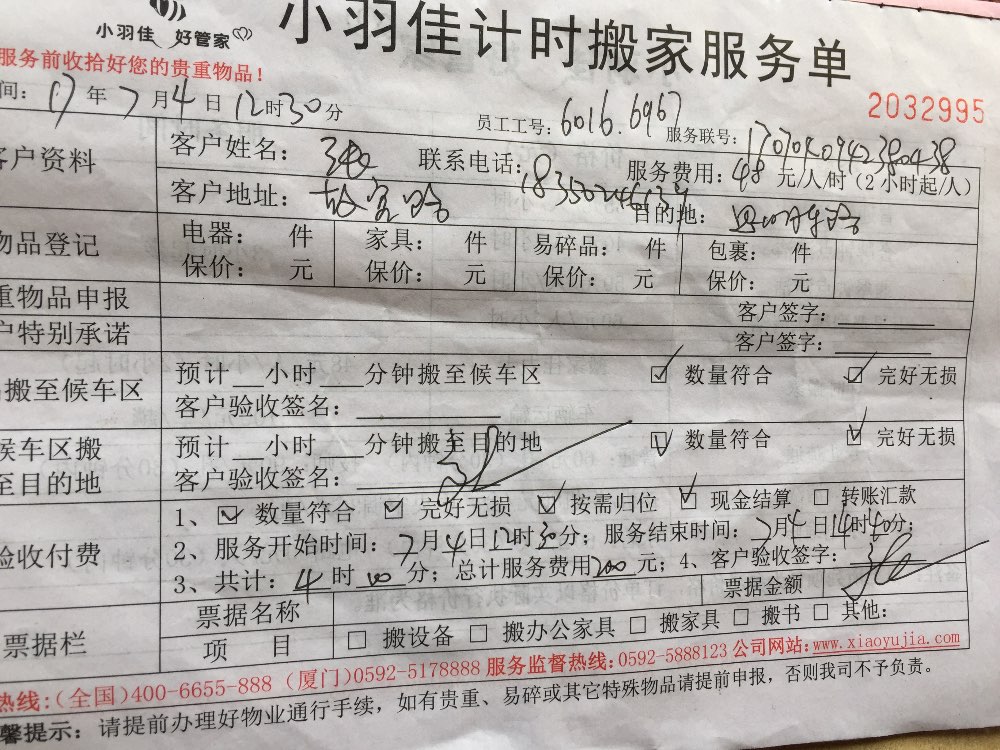 小羽佳 好管家
小羽佳计时搬家服务单
服务前收拾好您的贵重物品！
2032995
间：17年7月4日12时30分
员工工号：6016.6967
服务联号：
客户资料
客户姓名：
联系电话：
服务费用：48元/人/时（2小时起/人）
客户地址：
目的地：
物品登记
电器： 件 家具： 件 易碎品： 件 包裹： 件
保价： 元 保价： 元 保价： 元 保价： 元
重物品申报
客户签字：
户特别承诺
客户签字：
搬至候车区
预计__小时____分钟搬至候车区 ☑ 数量符合 ☑ 完好无损
客户验收签名：
候车区搬
至目的地
预计__小时____分钟搬至目的地 ☑ 数量符合 ☑ 完好无损
客户验收签名：
验收付费
1、☑ 数量符合 ☑ 完好无损 ☑ 按需归位 ☑ 现金结算 □ 转账汇款
2、服务开始时间：7月4日12时30分；服务结束时间：7月4日14时40分；
3、共计：4时00分；总计服务费用200元；4、客户验收签字：
票据栏
票据名称
票据金额
项 目
□ 搬设备 □ 搬办公家具 □ 搬家具 □ 搬书 □ 其他：
热线：（全国）400-6655-888 （厦门）0592-5178888 服务监督热线：0592-5888123 公司网站：www.xiaoyujia.com
馨提示：请提前办理好物业通行手续，如有贵重、易碎或其它特殊物品请提前申报，否则我司不予负责。